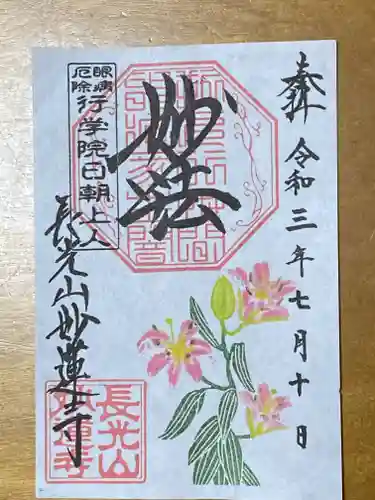 奉拝
令和三年七月十日
妙法
眼病
厄除
行学院日朝上人
長光山妙蓮寺
長光山
妙蓮寺